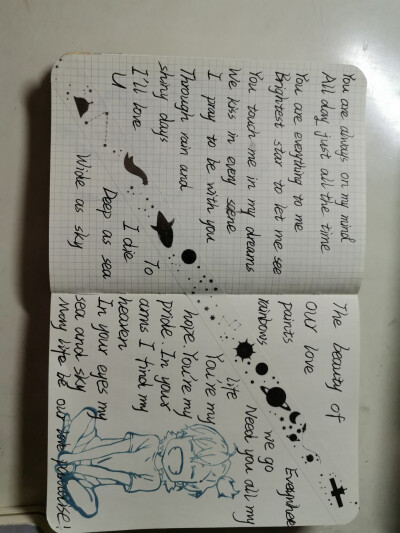 You are always on my mind
All day just all the time
You are everything to me
Brightest star to let me see
You touch me in my dreams
We kiss in every scene
I pray to be with you
Through rain and
shiny days
I'll love
U
To
I die
Deep as sea
Wide as sky
The beauty of
our love
paints
rainbows
Everywhere
we go
Need you all my
life
You're my
hope You're my
pride. In your
arms I find my
heaven
In your eyes my
sea and sky
May life be our love paradise!